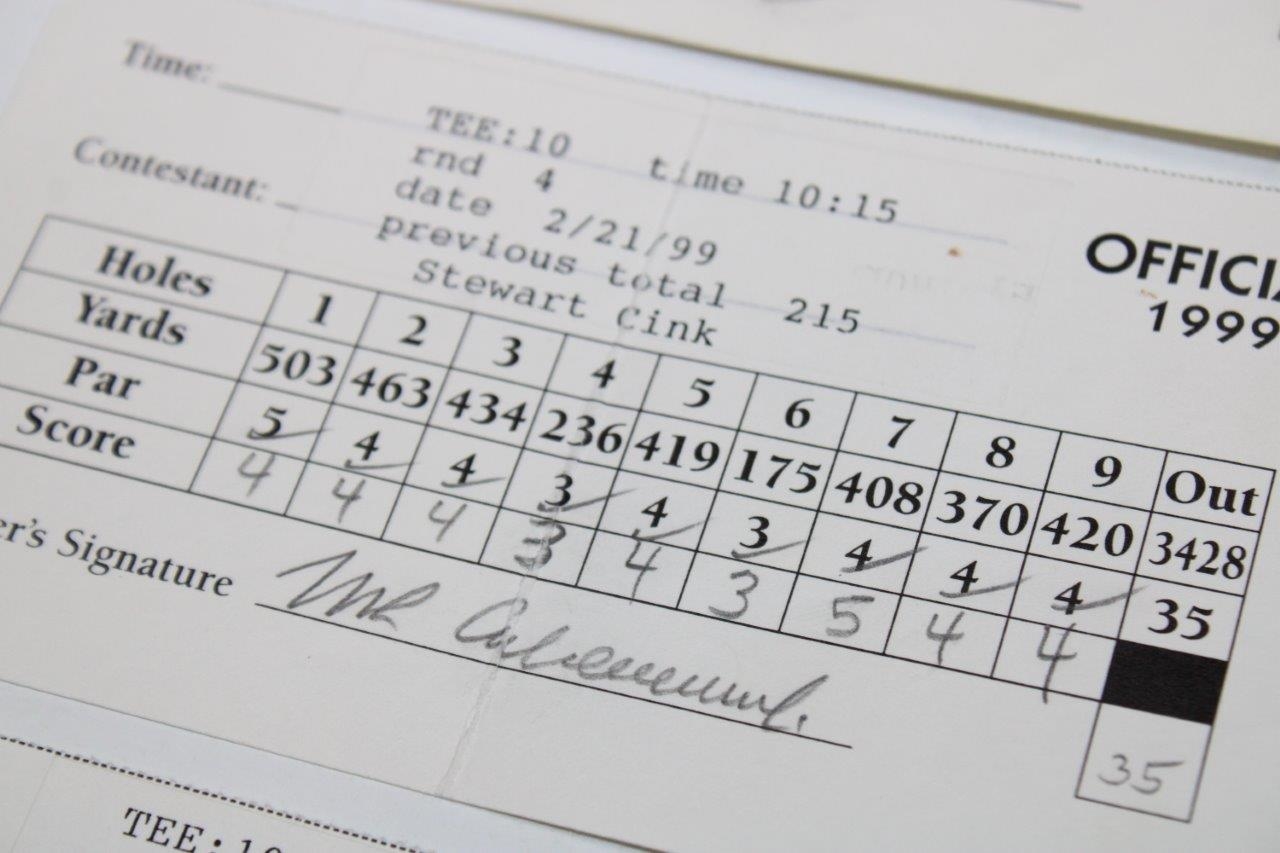 Time:
TEE:10 time 10:15
Contestant:
rnd 4
date 2/21/99
previous total 215
Stewart Cink
OFFICIA
1999
Holes 1 2 3 4 5 6 7 8 9 Out
Yards 503 463 434 236 419 175 408 370 420 3428
Par 5 4 4 3 4 3 4 4 4 35
Score 4 4 4 3 4 3 5 4 4
35
er's Signature
TEE:10